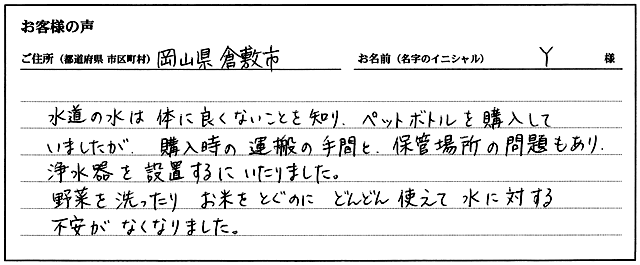 お客様の声
ご住所（都道府県 市区町村）岡山県倉敷市 お名前（名字のイニシャル） Y 様
水道の水は体に良くないことを知り、ペットボトルを購入して
いましたが、購入時の運搬の手間と、保管場所の問題もあり、
浄水器を設置するにいたりました。
野菜を洗ったり お米をとぐのに どんどん使えて水に対する
不安がなくなりました。